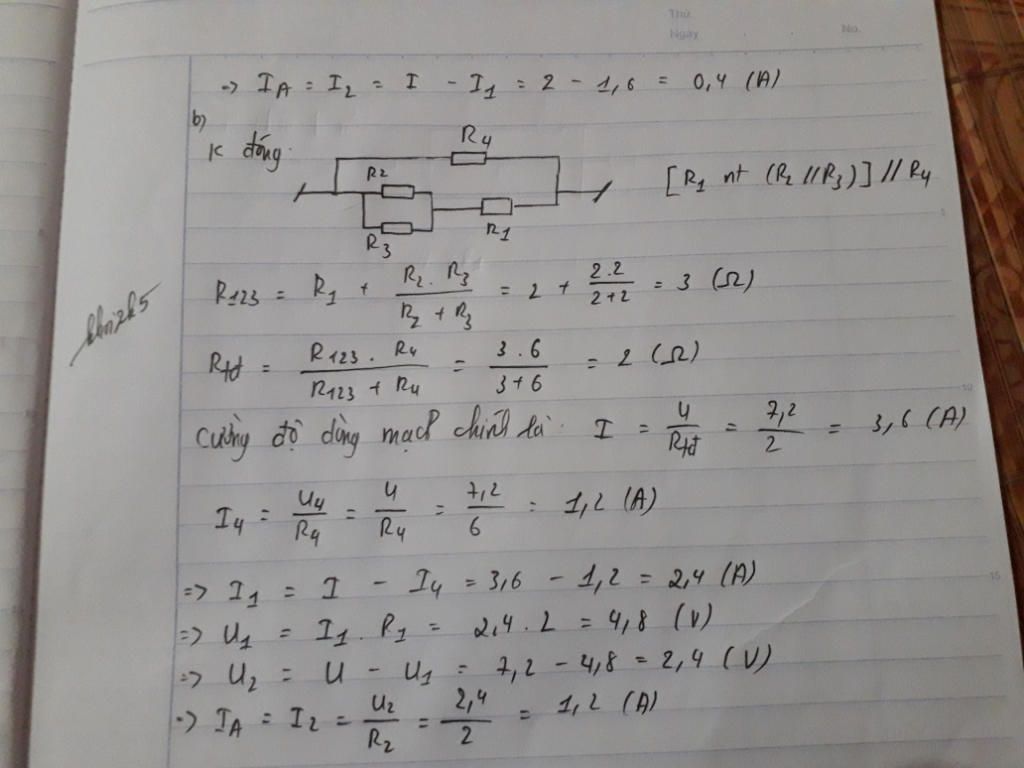 Thứ
Ngày
No.
=> I_A = I_2 = I - I_1 = 2 - 1,6 = 0,4 (A)
b)
K đóng.
R4
R2
R3
R1
[R_1 nt (R_2 // R_3)] // R_4
R_123 = R_1 + \frac{R_2 . R_3}{R_2 + R_3} = 2 + \frac{2.2}{2+2} = 3 (Ω)
R_tđ = \frac{R_123 . R_4}{R_123 + R_4} = \frac{3.6}{3+6} = 2 (Ω)
Cường độ dòng mạch chính là: I = \frac{U}{R_tđ} = \frac{7,2}{2} = 3,6 (A)
I_4 = \frac{U_4}{R_4} = \frac{U}{R_4} = \frac{7,2}{6} = 1,2 (A)
=> I_1 = I - I_4 = 3,6 - 1,2 = 2,4 (A)
=> U_1 = I_1 . R_1 = 2,4 . 2 = 4,8 (V)
=> U_2 = U - U_1 = 7,2 - 4,8 = 2,4 (V)
=> I_A = I_2 = \frac{U_2}{R_2} = \frac{2,4}{2} = 1,2 (A)